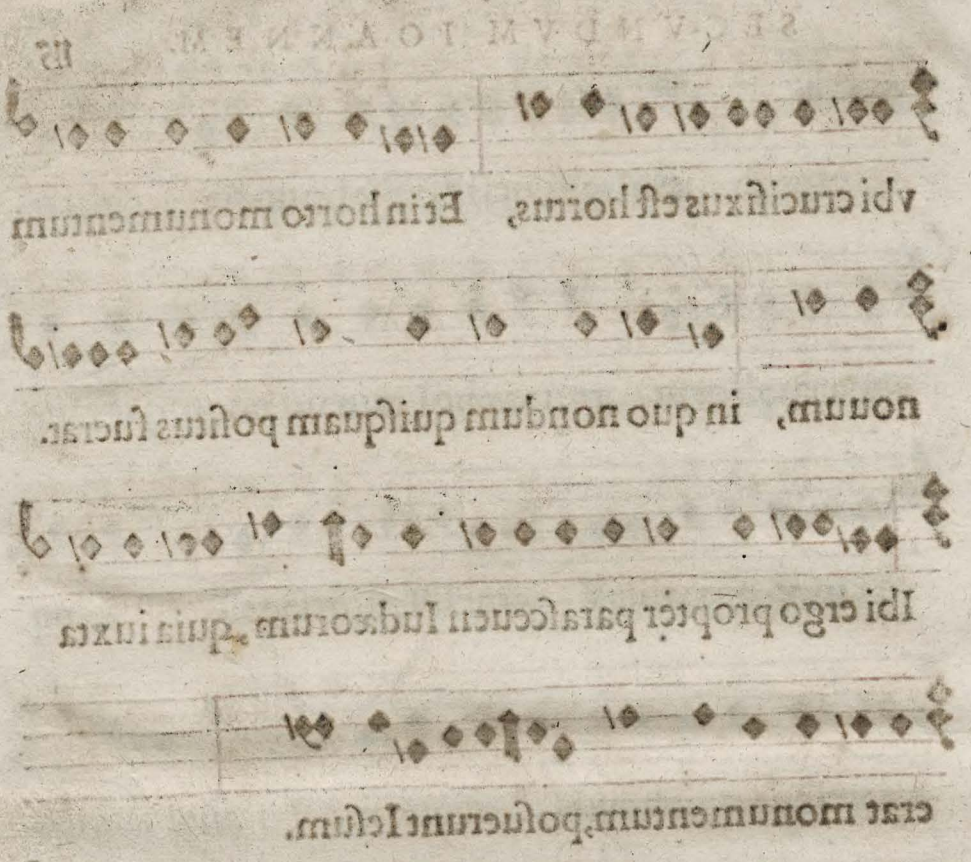 SECVNDVM IOANNEM. 115
vbi crucifixus est hortus, Et in horto monumentum
nouum, in quo nondum quisquam positus fuerat.
Ibi ergo propter parasceuen Iudæorum, quia iuxta
erat monumentum, posuerunt Iesum.